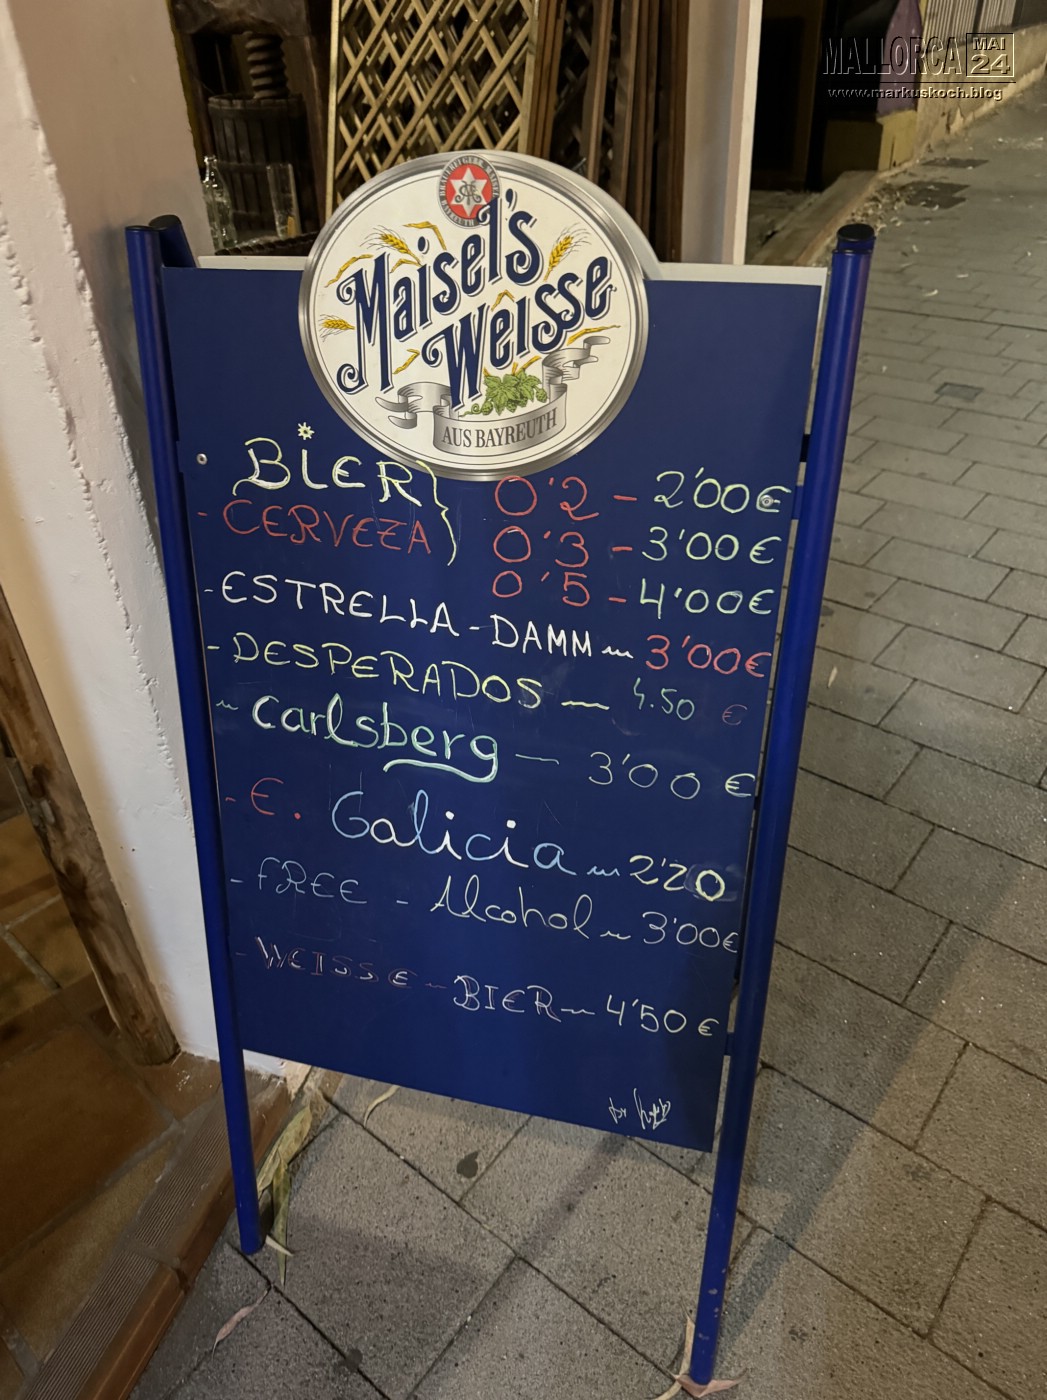 MALLORCA MAI 24
www.markuskoch.blog
Maisel's
Weisse
AUS BAYREUTH
BIER
- CERVEZA
0'2 - 2'00€
0'3 - 3'00€
0'5 - 4'00€
- ESTRELLA - DAMM ~ 3'00€
- DESPERADOS — 4.50 €
~ Carlsberg — 3'00 €
- E. Galicia ~ 2'20
- FREE - Alcohol ~ 3'00€
- WEISSE - BIER ~ 4'50€